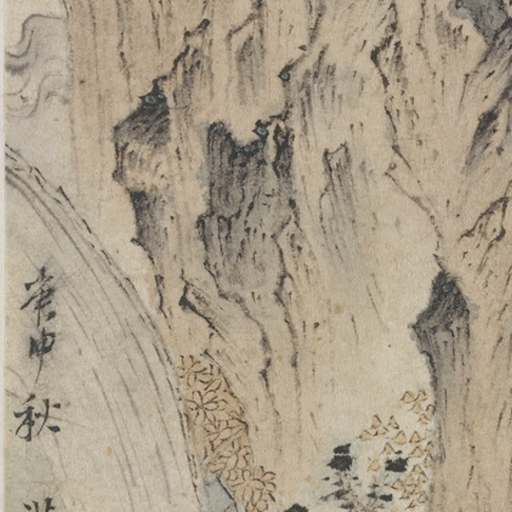 庚申秋